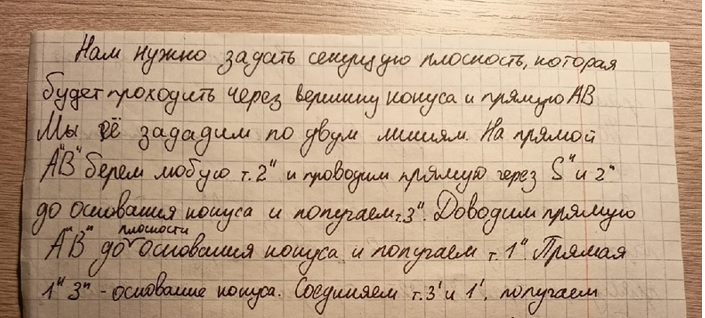 Нам нужно задать секущую плоскость, которая
будет проходить через вершину конуса и прямую АВ
Мы её зададим по двум линиям. На прямой
А"В" берем любую т. 2" и проводим прямую через S" и 2"
до основания конуса и получаем т. 3". Доводим прямую
А"В" до плоскости основания конуса и получаем т. 1". Прямая
1" 3" - основание конуса. Соединяем т. 3' и 1', получаем